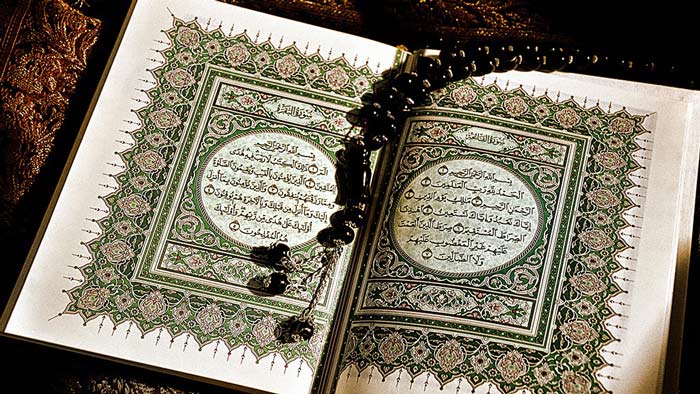 سورة الفاتحة
بسم الله الرحمن الرحيم
الحمد لله رب العالمين
الرحمن الرحيم ملك يوم الدين
إياك نعبد وإياك نستعين اهدنا
الصرط المستقيم صرط الذين أنعمت
عليهم غير المغضوب عليهم
ولا الضالين
سورة البقرة
بسم الله الرحمن الرحيم
الم ذلك الكتب لا ريب فيه هدى
للمتقين الذين يؤمنون بالغيب ويقيمون الصلوة
ومما رزقنهم ينفقون والذين يؤمنون بما أنزل
إليك وما أنزل من قبلك وبالآخرة هم يوقنون
أولئك على هدى من ربهم وأولئك
هم المفلحون